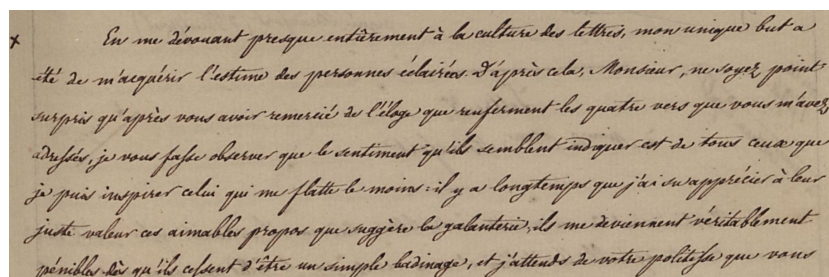 x En me dévouant presque entièrement à la culture des lettres, mon unique but a
été de m'acquérir l'estime des personnes éclairées. D'après cela, Monsieur, ne soyez point
surpris qu'après vous avoir remercié de l'éloge que renferment les quatre vers que vous m'avez
adressés, je vous fasse observer que le sentiment qu'ils semblent indiquer est de tous ceux que
je puis inspirer celui qui me flatte le moins : il y a longtemps que j'ai su apprécier à leur
juste valeur ces aimables propos que suggère la galanterie ; ils me deviennent véritablement
pénibles dès qu'ils cessent d'être un simple badinage, et j'attends de votre politesse que vous